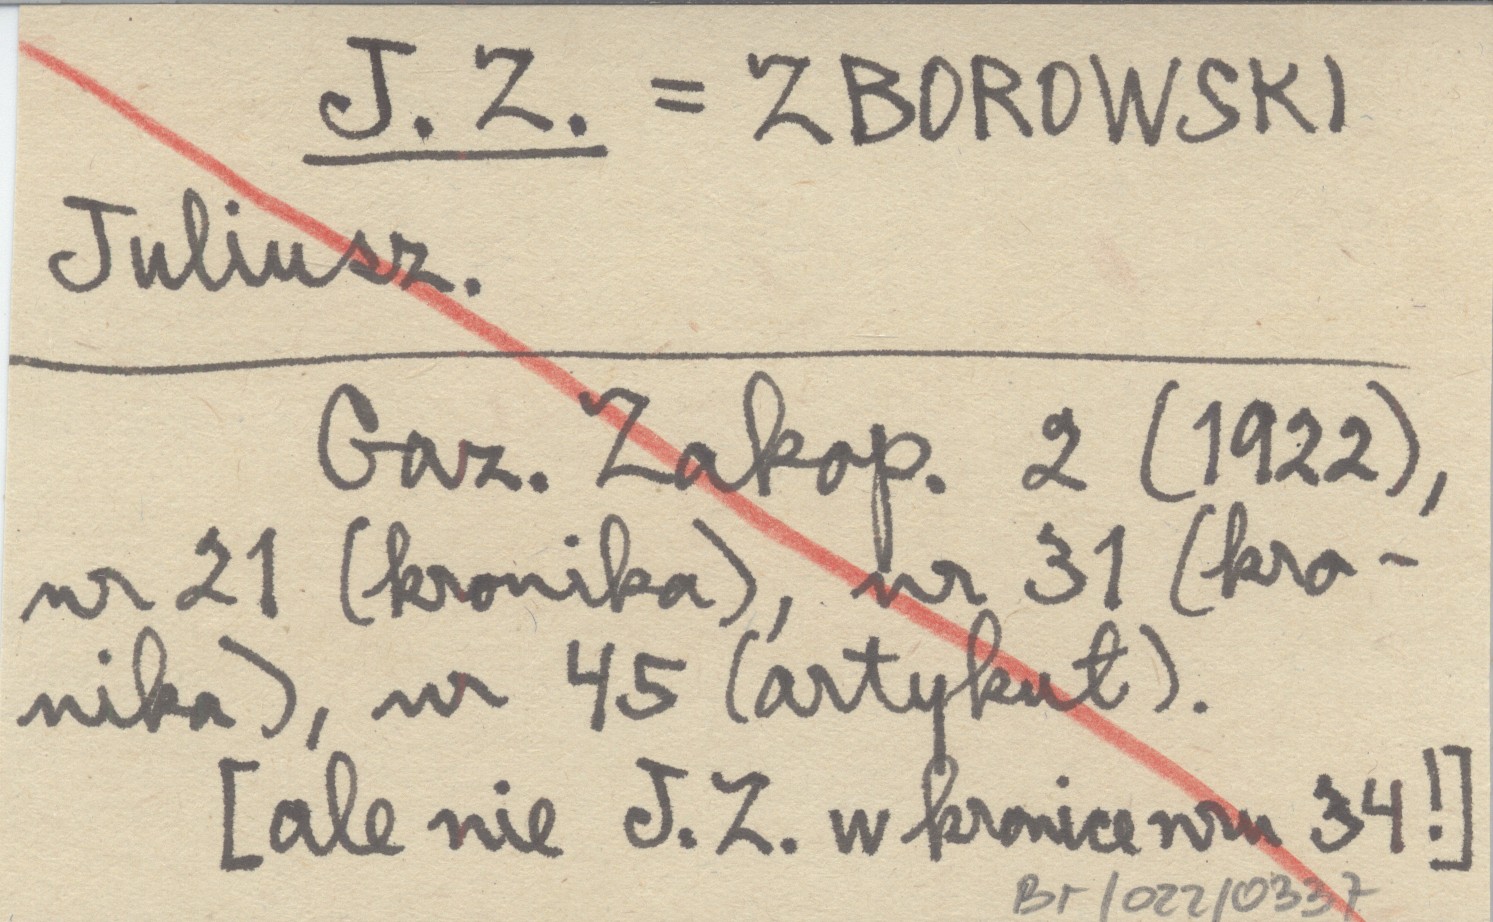 J. Z. = ZBOROWSKI
Juliusz.
Gaz. Zakop. 2 (1922),
nr 21 (kronika), nr 31 (kro-
nika), nr 45 (artykuł).
[ale nie J. Z. w kronice nru 34!]
Br/022/0337